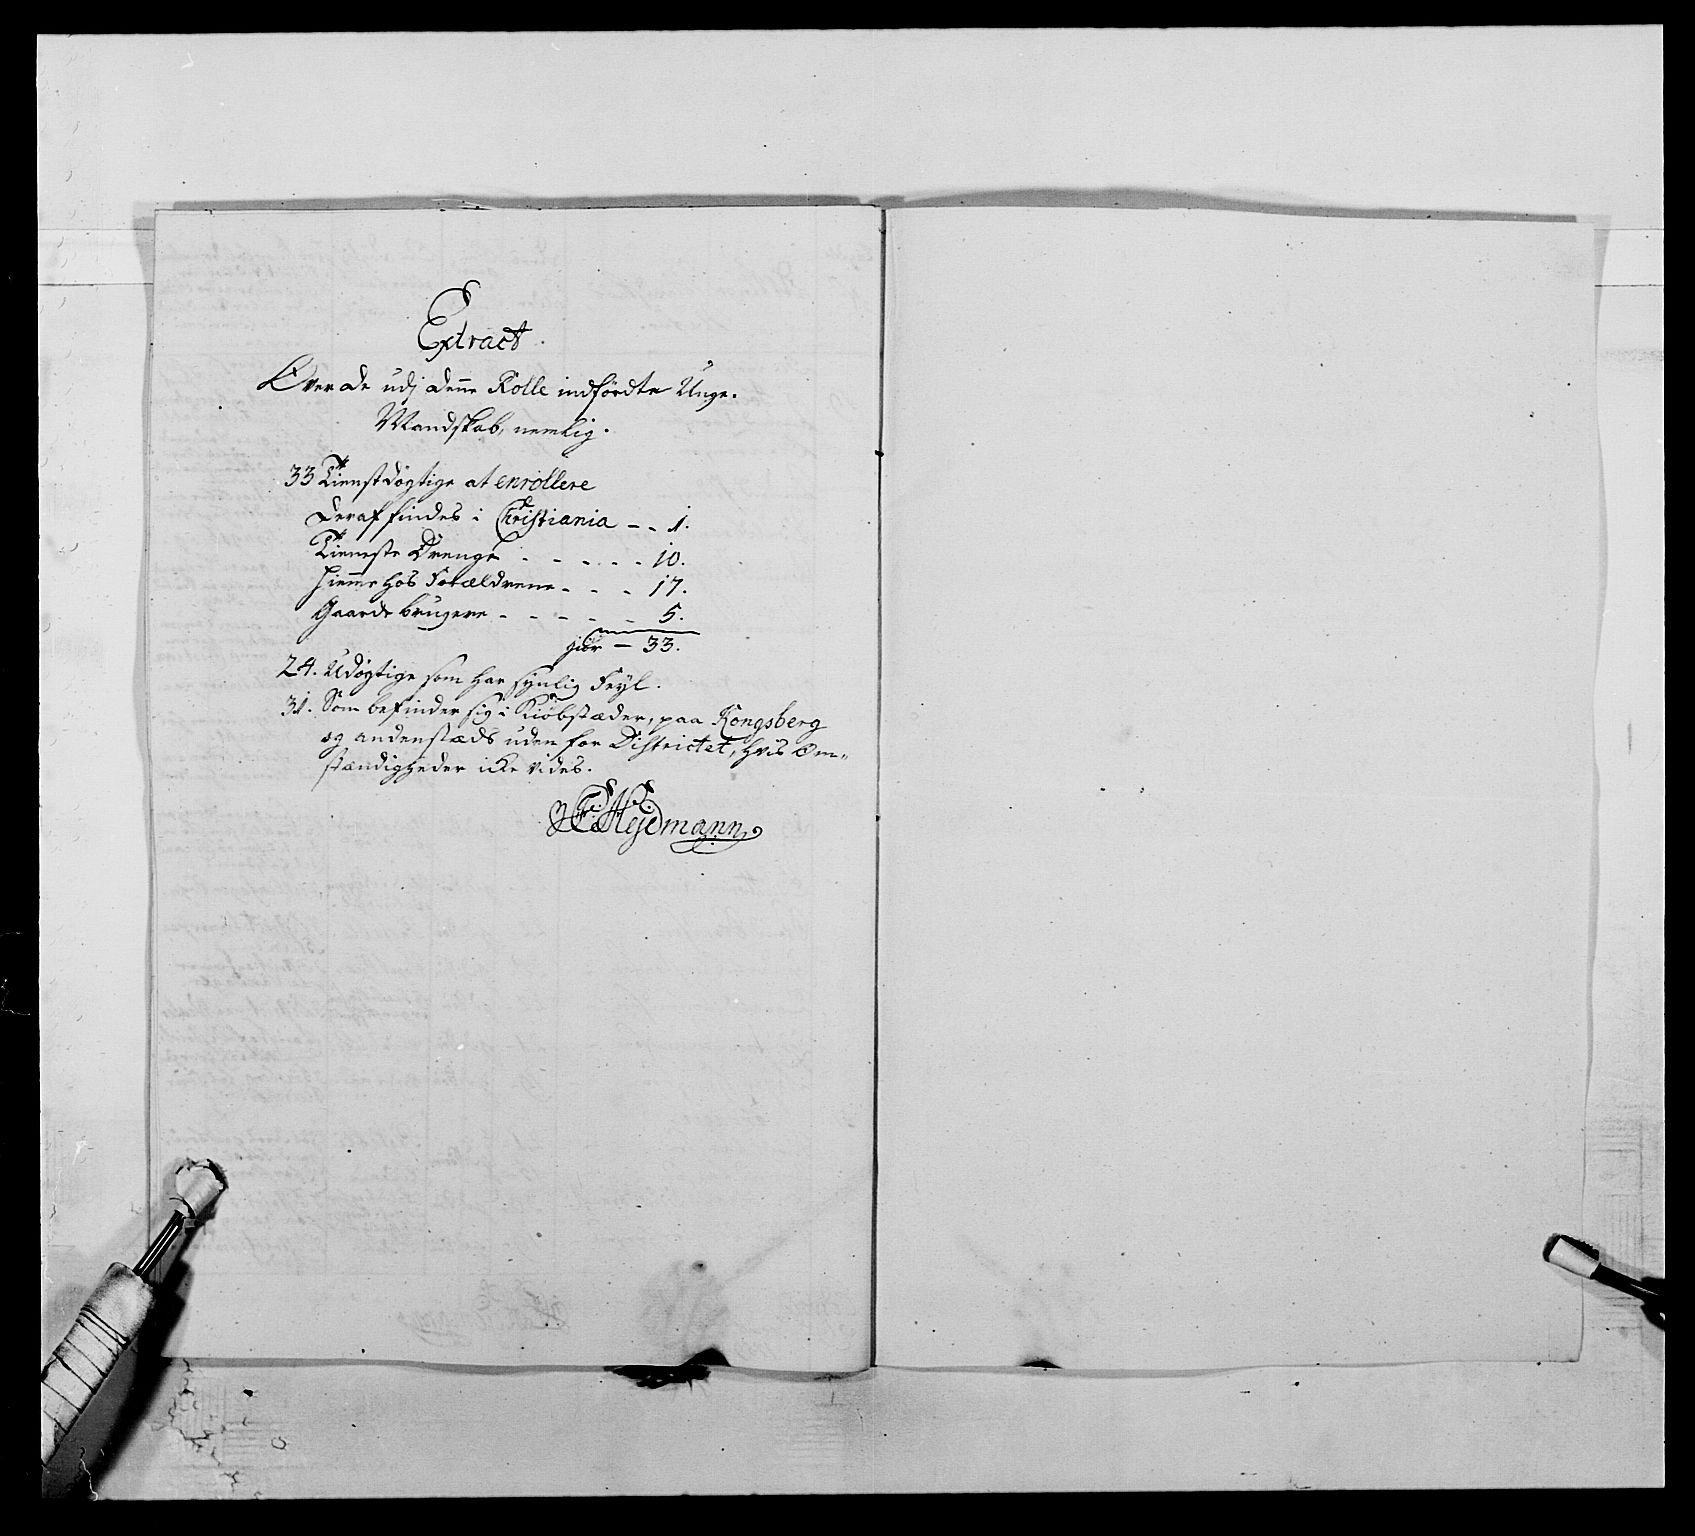 Extract.
Over de udj denne Rolle indførdte Unge.
Mandskab, nemlig.
33 Tienstdøgtige at enrollere
Deraf findes i Christiania - - 1.
Tieneste Drenge - - - - - 10.
Hiemme hos Forældrene - - - 17.
Gaardebrugere - - - - - 5.
giør - 33.
24. Udøgtige som har synlig Feyl.
31. Som befinder sig i Kiøbstæder, paa Kongsberg
og andenstæds uden for Districtet, hvis Om-
stændigheder icke vides.
Hejdmann